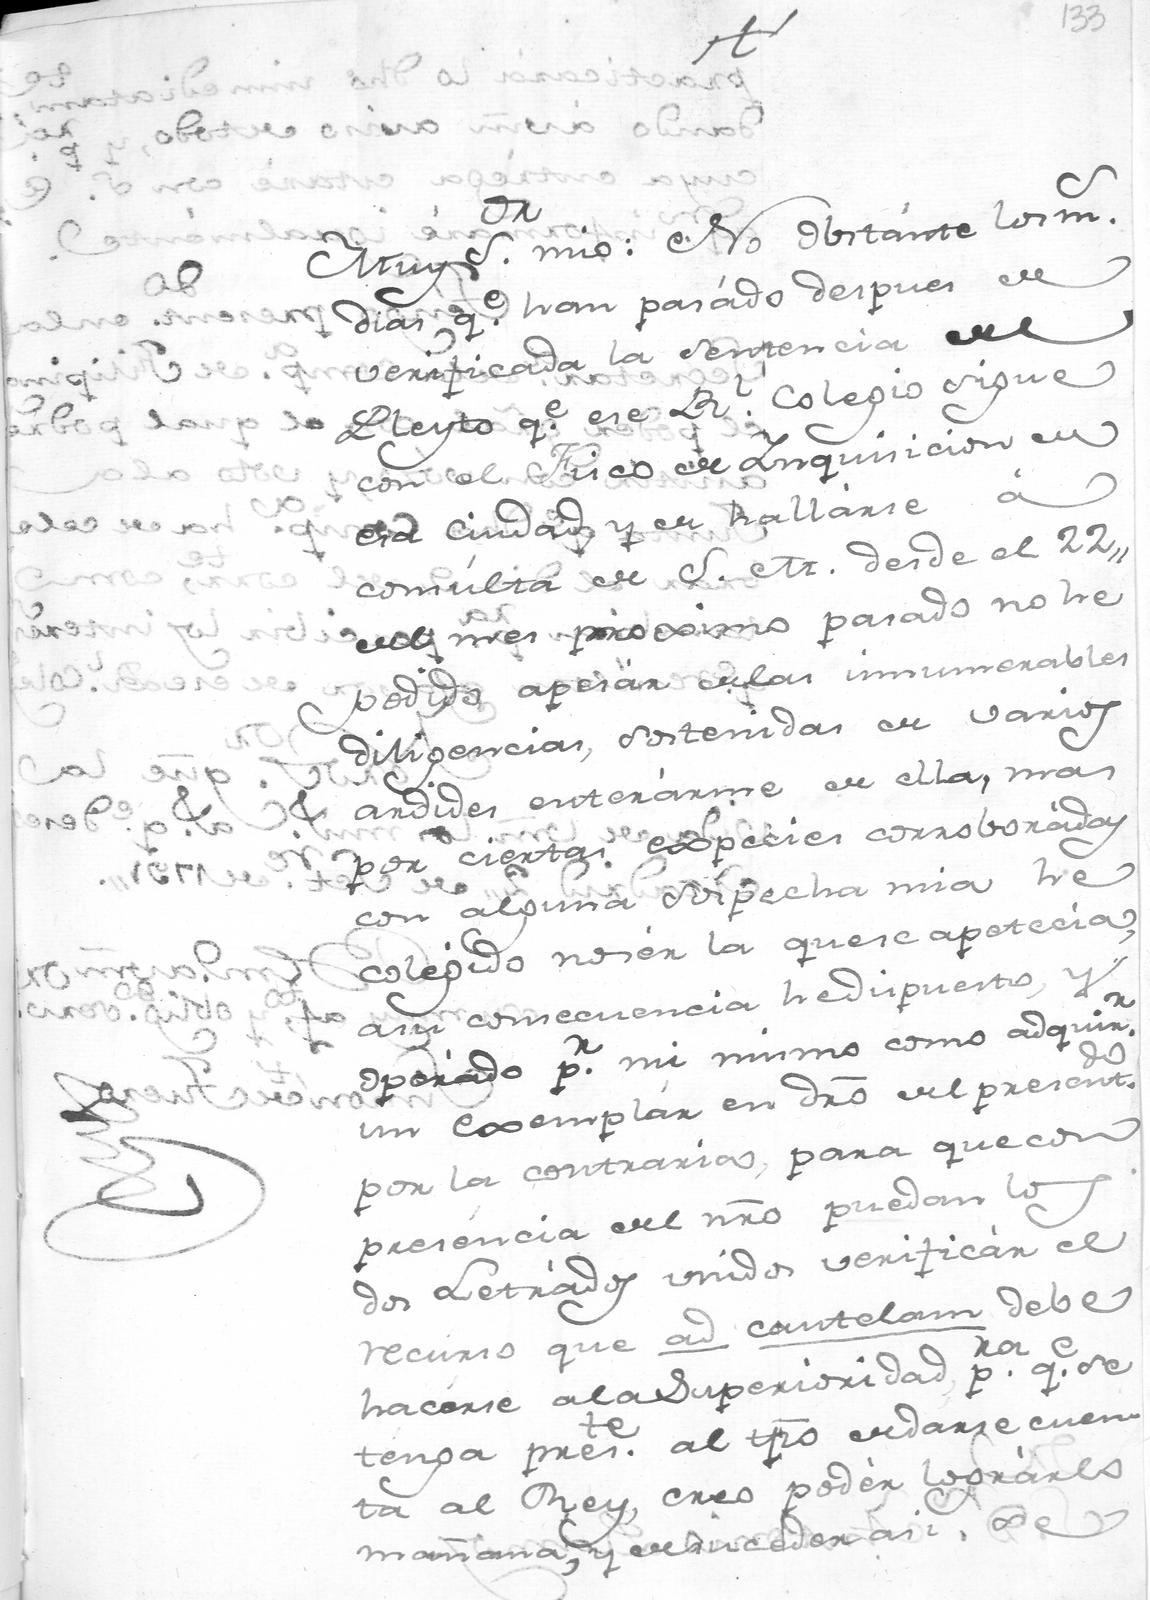 133
Muy S.or mio: No obstánte los m.s
dias q.e han pasádo despues de
verificada la sentencia del
Pleyto q.e ese R.l Colegio sigue
con el Fisco de Ynquisicion de
esa Ciudad, y de hallárse à
consúlta de S. M. desde el 22,,
del mes proximo pasado no he
podido, apesár delas innumerables
diligencias, sostenidas de varios
ardides enterárme de ella, mas
por ciertas especies corroborádas
con alguna sospecha mia he
colegido nosér la quese apetecia,
asu consecuencia hedispuesto, y
operádo p.r mi mismo como adquir.r
un exemplár en dro del present.do
por la contraria, para quecon
preséncia del nro puedan los
dos Letrádos unidos verificár el
recurso que ad cautelam debe
hacérse ala Superioridad, p.ra q.e se
tenga pres.te al tpo dedarse cuen-
ta al Rey, creo podér lográrlo
mañana, y desucéder asi, se